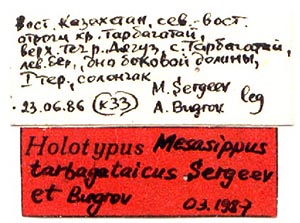 Вост. Казахстан, сев.-вост.
отроги хр. Тарбагатай,
верх. теч. р. Аягуз, с. Тарбагатай,
лев. бер., дно боковой долины,
I тер., солончак
M. Sergeev
23.06.86 (к33) A. Bugrov leg
Holotypus Mesasippus
tarbagataicus Sergeev
et Bugrov 03.1987